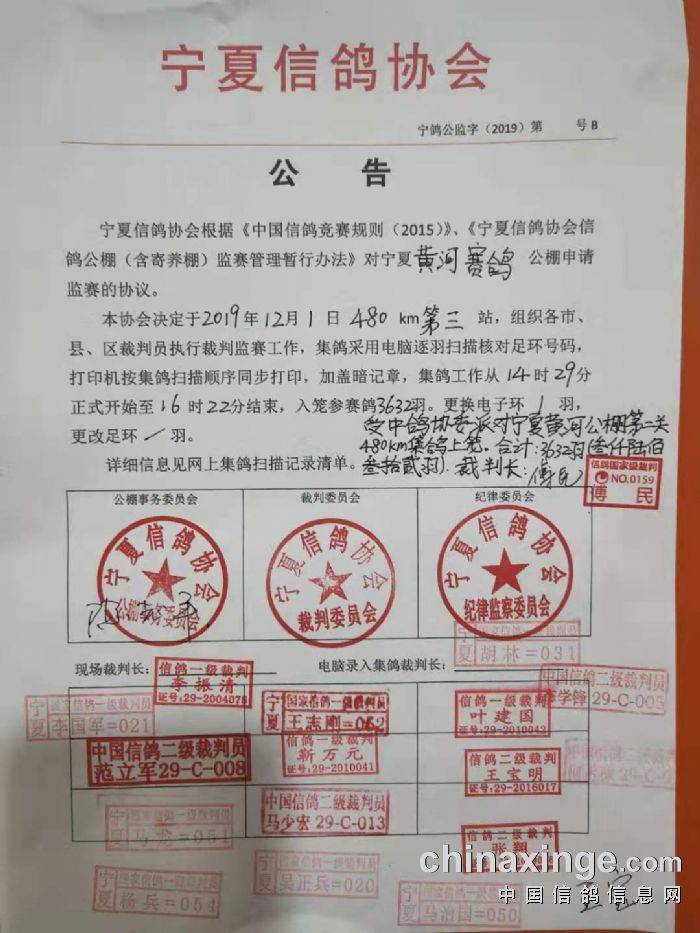 宁夏信鸽协会
宁鸽公监字（2019）第　　号B
公　告
宁夏信鸽协会根据《中国信鸽竞赛规则（2015）》、《宁夏信鸽协会信
鸽公棚（含寄养棚）监赛管理暂行办法》对宁夏黄河赛鸽公棚申请
监赛的协议。
本协会决定于2019年12月1日480km第三站，组织各市、
县、区裁判员执行裁判监赛工作，集鸽采用电脑逐羽扫描核对足环号码，
打印机按集鸽扫描顺序同步打印，加盖暗记章，集鸽工作从14时29分
正式开始至16时22分结束，入笼参赛鸽3632羽。更换电子环1羽，
更改足环/羽。
受中鸽协委派对宁夏黄河公棚第二关
480km集鸽上笼。合计:3632羽(叁仟陆佰
叁拾贰羽). 裁判长:傅民
详细信息见网上集鸽扫描记录清单。
信鸽国家级裁判
NO.0159
博民
公棚事务委员会
裁判委员会
纪律委员会
宁夏信鸽协会
公棚事务委员会
宁夏信鸽协会
裁判委员会
宁夏信鸽协会
纪律监察委员会
现场裁判长：
信鸽一级裁判
李振清
证号:29-2004075
电脑录入集鸽裁判长：
国家信鸽一级裁判员
宁夏 胡林=031
中国信鸽二级裁判员
李学锋29-C-005
国家信鸽一级裁判员
宁夏 李国军=021
国家信鸽一级裁判员
宁夏 王志刚=052
信鸽一级裁判
叶建国
证号:29-2010042
中国信鸽二级裁判员
范立军29-C-008
信鸽一级裁判
靳万元
证号:29-2010041
信鸽二级裁判
王宝明
证号:29-2016017
中国信鸽二级裁判员
国家信鸽一级裁判员
宁夏 马龙=051
中国信鸽二级裁判员
马少宏29-C-013
信鸽二级裁判
张翔
国家信鸽一级裁判员
宁夏 杨兵=054
国家信鸽一级裁判员
宁夏 吴正兵=020
国家信鸽一级裁判员
宁夏 马治国=050
chinaxinge.com
中国信鸽信息网